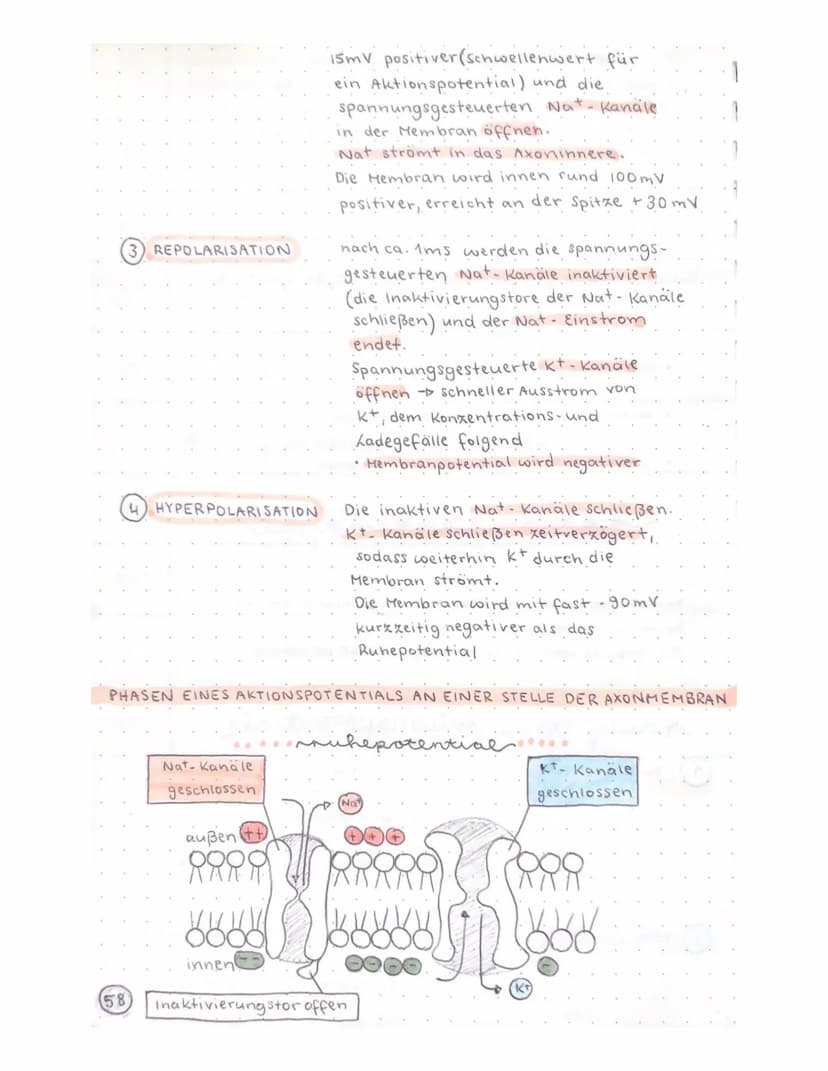 15mV positiver (Schwellenwert für
ein Aktionspotential) und die
spannungsgesteuerten Na⁺-Kanäle
in der Membran öffnen.
Na⁺ strömt in das Axoninnere.
Die Membran wird innen rund 100mV
positiver, erreicht an der Spitze +30mV
3 REPOLARISATION
nach ca. 1ms werden die spannungs-
gesteuerten Na⁺-Kanäle inaktiviert
(die Inaktivierungstore der Na⁺-Kanäle
schließen) und der Na⁺-Einstrom
endet.
Spannungsgesteuerte K⁺-Kanäle
öffnen → schneller Ausstrom von
K⁺, dem Konzentrations- und
Ladegefälle folgend
· Membranpotential wird negativer
4 HYPERPOLARISATION
Die inaktiven Na⁺-Kanäle schließen.
K⁺-Kanäle schließen zeitverzögert,
sodass weiterhin K⁺ durch die
Membran strömt.
Die Membran wird mit fast -90mV
kurzzeitig negativer als das
Ruhepotential
PHASEN EINES AKTIONSPOTENTIALS AN EINER STELLE DER AXONMEMBRAN
Ruhepotential
Na⁺-Kanäle
geschlossen
K⁺-Kanäle
geschlossen
Na⁺
außen ++
+ + +
innen --
- - - -
-
K⁺
58
Inaktivierungstor offen